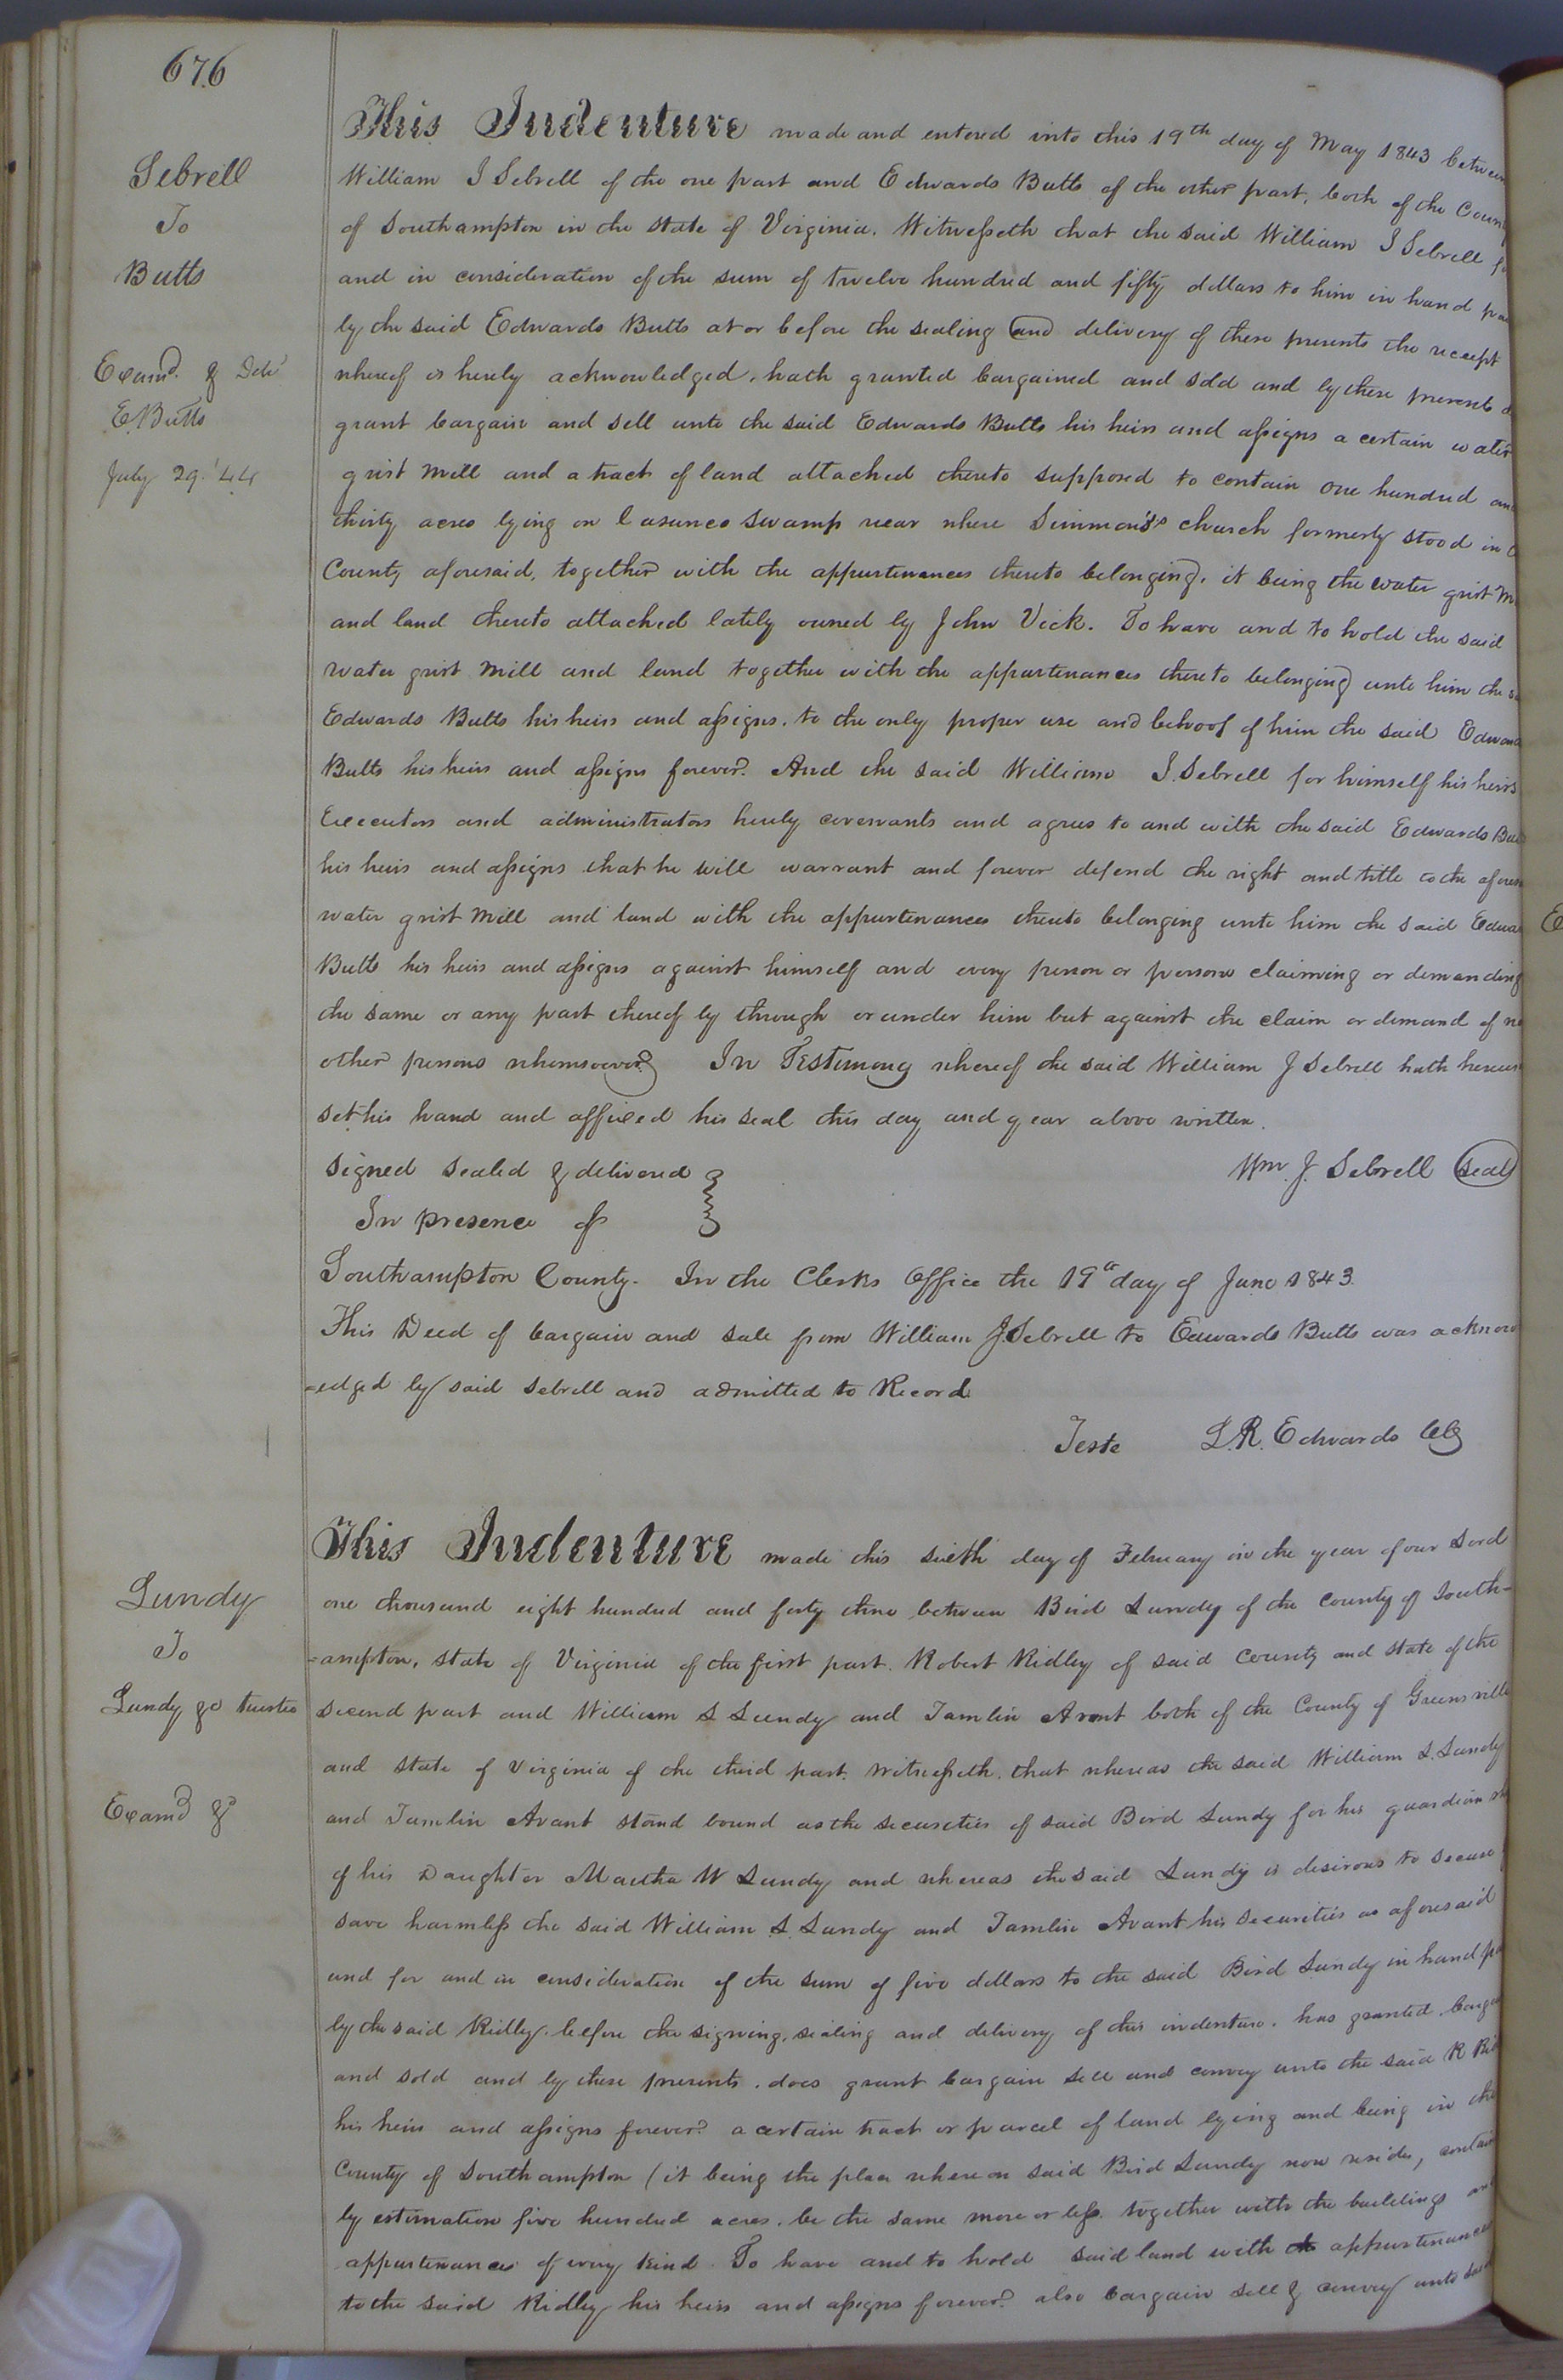 676
Sebrell
To
Butts
Examd. & Deld
E. Butts
July 29. '44
This Indenture made and entered into this 19th day of May 1843 between
William J Sebrell of the one part and Edwards Butts of the other part, both of the Coun
of Southampton in the State of Virginia. Witnesseth that the said William J Sebrell fo
and in consideration of the sum of twelve hundred and fifty dollars to him in hand pa
by the said Edwards Butts at or before the sealing and delivery of these presents the receipt
whereof is hereby acknowledged, hath granted bargained and sold and by these presents d
grant bargain and sell unto the said Edwards Butts his heirs and assigns a certain water
grist mill and a tract of land attached thereto supposed to contain one hundred an
thirty acres lying on swamp near where Simmons's church formerly stood in
County aforesaid, together with the appurtenances thereto belonging, it being the water grist M
and land thereto attached lately owned by John Vick. To have and to hold the said
water grist mill and land together with the appurtenances thereto belonging unto him the s
Edwards Butts his heirs and assigns, to the only proper use and behoof of him the said Edward
Butts his heirs and assigns forever. And the said William J. Sebrell for himself his heirs
Executors and administrators hereby covenants and agrees to and with the said Edwards But
his heirs and assigns that he will warrant and forever defend the right and title to the afores
water grist Mill and land with the appurtenances thereto belonging unto him the said Edwa
Butts his heirs and assigns against himself and every person or persons claiming or demanding
the same or any part thereof by through or under him but against the claim or demand of no
other persons whomsoever. In Testimony whereof the said William J Sebrell hath hereun
set his hand and affixed his seal this day and year above written.
Signed Sealed & delivered
In presence of
Wm. J. Sebrell Seal
Southampton County. In the Clerks Office the 19th day of June 1843.
This Deed of bargain and sale from William J Sebrell to Edwards Butts was acknow
-edged by said Sebrell and admitted to Record
Teste L.R. Edwards Clk
Lundy
To
Lundy &c trustee
Examd &d
This Indenture made this sixth day of February in the year of our Lord
one thousand eight hundred and forty three between Bird Lundy of the County of South-
-ampton, State of Virginia of the first part. Robert Ridley of said County and State of the
second part and William L Lundy and Tamlin Avent both of the County of Greensville
and State of Virginia of the third part. witnesseth. that whereas the said William L. Lundy
and Tamlin Avant stand bound as the securities of said Bird Lundy for his guardian sh
of his Daughter Martha W Lundy and whereas the said Lundy is desirous to secure
save harmless the said William L. Lundy and Tamlin Avant his securities as aforesaid
and for and in consideration of the sum of five dollars to the said Bird Lundy in hand pa
by the said Ridley. before the signing, sealing and delivery of this indenture. has granted. barga
and sold and by these presents. does grant bargain sell and convey unto the said R Rid
his heirs and assigns forever. a certain tract or parcel of land lying and being in the
County of Southampton (it being the place whereon said Bird Lundy now resides, contain
by estimation five hundred acres. be the same more or less. together with the buildings an
appurtenances of every kind. To have and to hold said land with appurtenances
to the said Ridley his heirs and assigns forever. also bargain sell & convey unto said